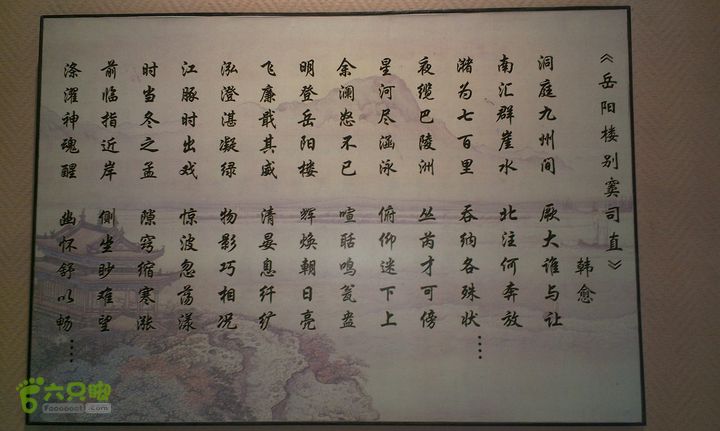 《岳阳楼别窦司直》
韩愈
洞庭九州间 厥大谁与让
南汇群崖水 北注何奔放
潴为七百里 吞纳各殊状....
夜缆巴陵洲 丛芮才可傍
星河尽涵泳 俯仰迷下上
余澜怒不已 喧聒鸣瓮盎
明登岳阳楼 辉焕朝日亮
飞廉戢其威 清晏息纤纩
泓澄湛凝绿 物影巧相况
江豚时出戏 惊波忽荡漾
时当冬之孟 隙窍缩寒涨
前临指近岸 侧坐眇难望
涤濯神魂醒 幽怀舒以畅....
六只脚
Foooooot.com